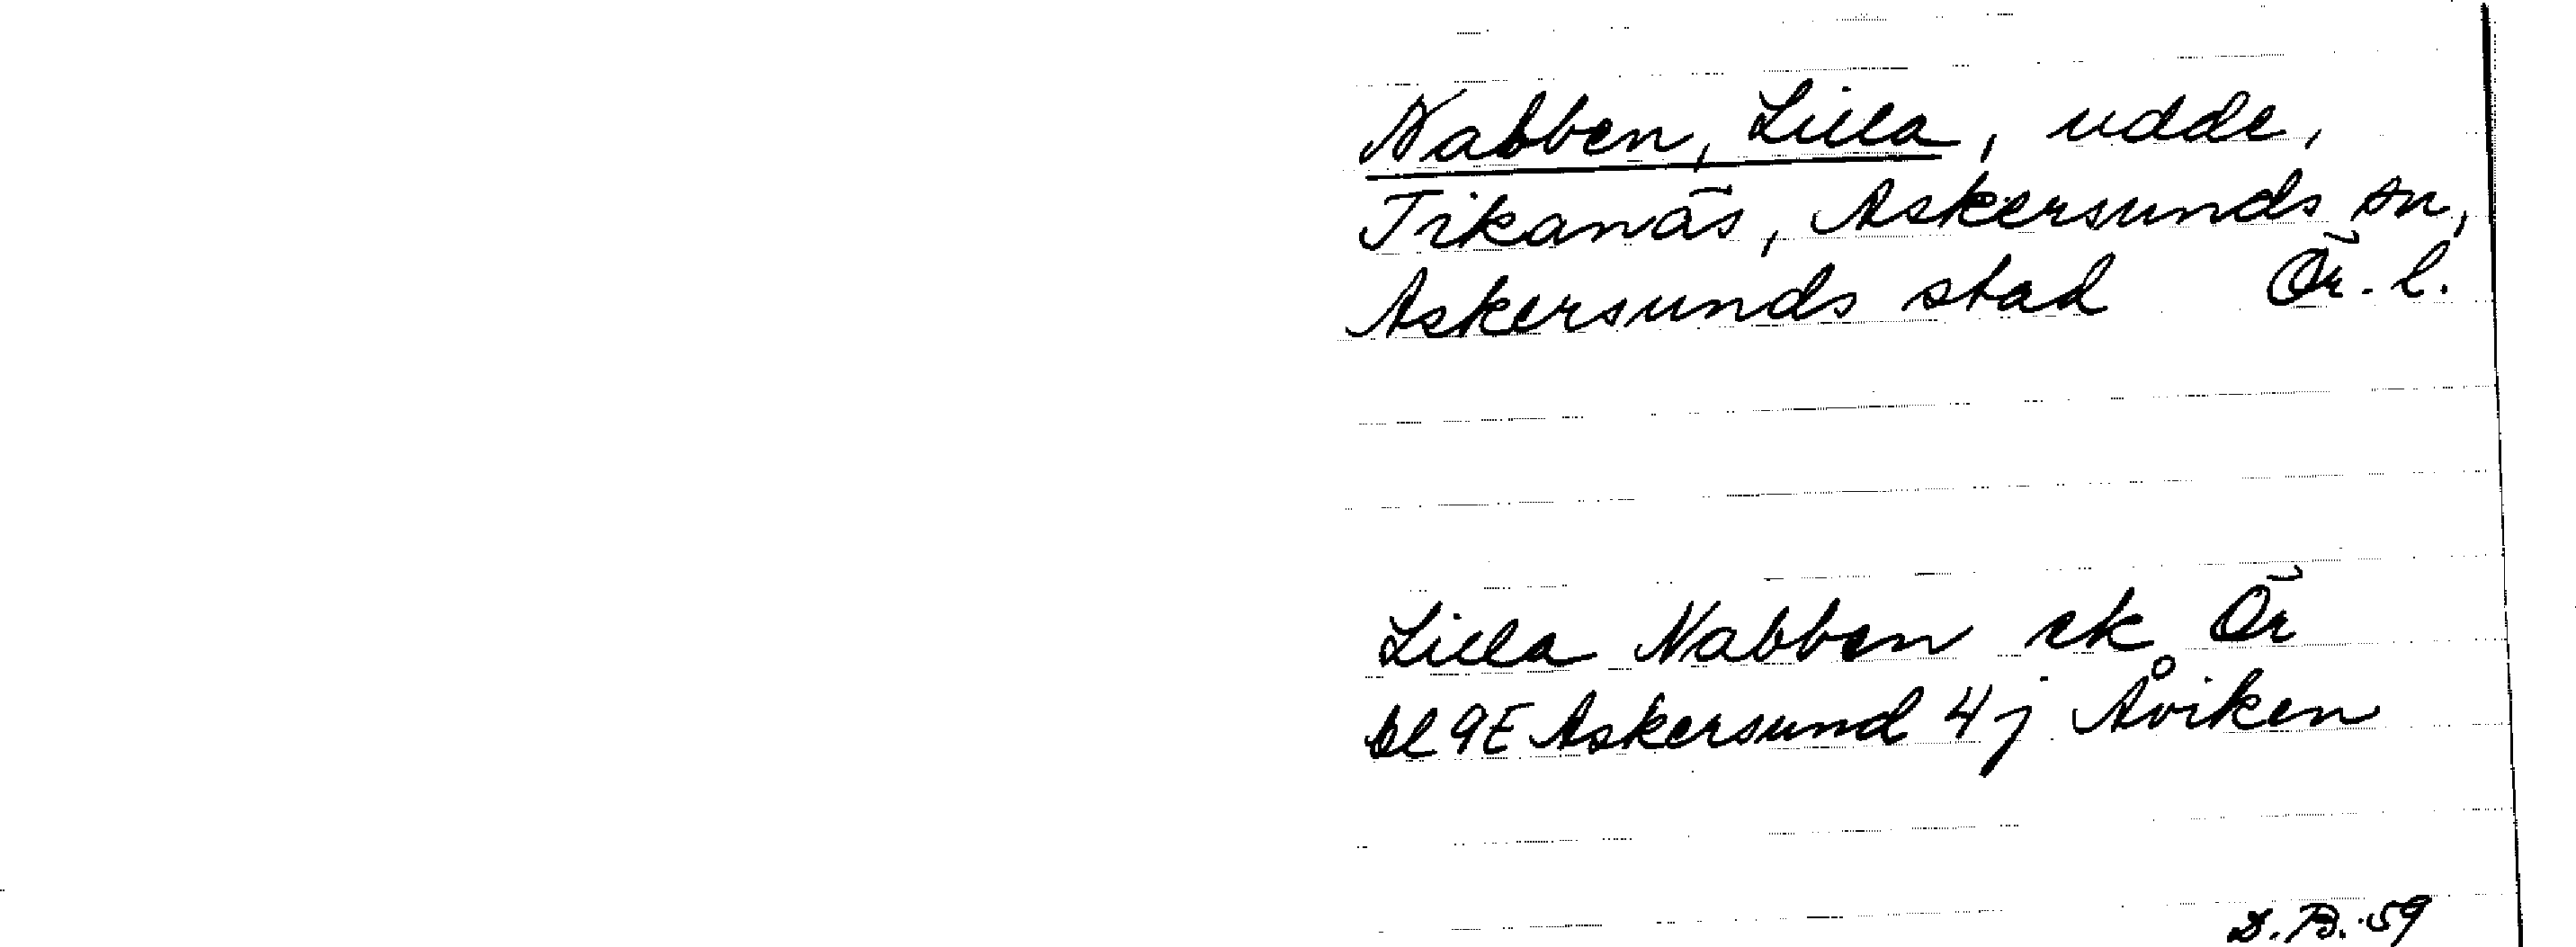 Nabben, Lilla, udde,
Trikanäs, Askersunds sn,
Askersunds stad Ör. l.
Lilla Nabben ek Ör
bl 9E Askersund 4j Åviken
D.B. 59